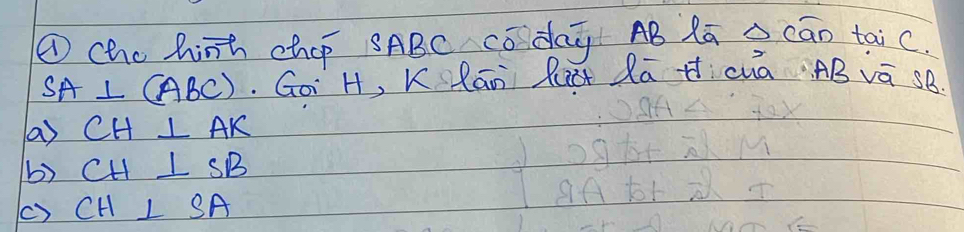 ① Cho hình chóp SABC có đáy AB là △ cân tại C.
SA ⊥ (ABC). Gọi H, K lần lượt là tđ của AB và SB.
a) CH ⊥ AK
b) CH ⊥ SB
c) CH ⊥ SA